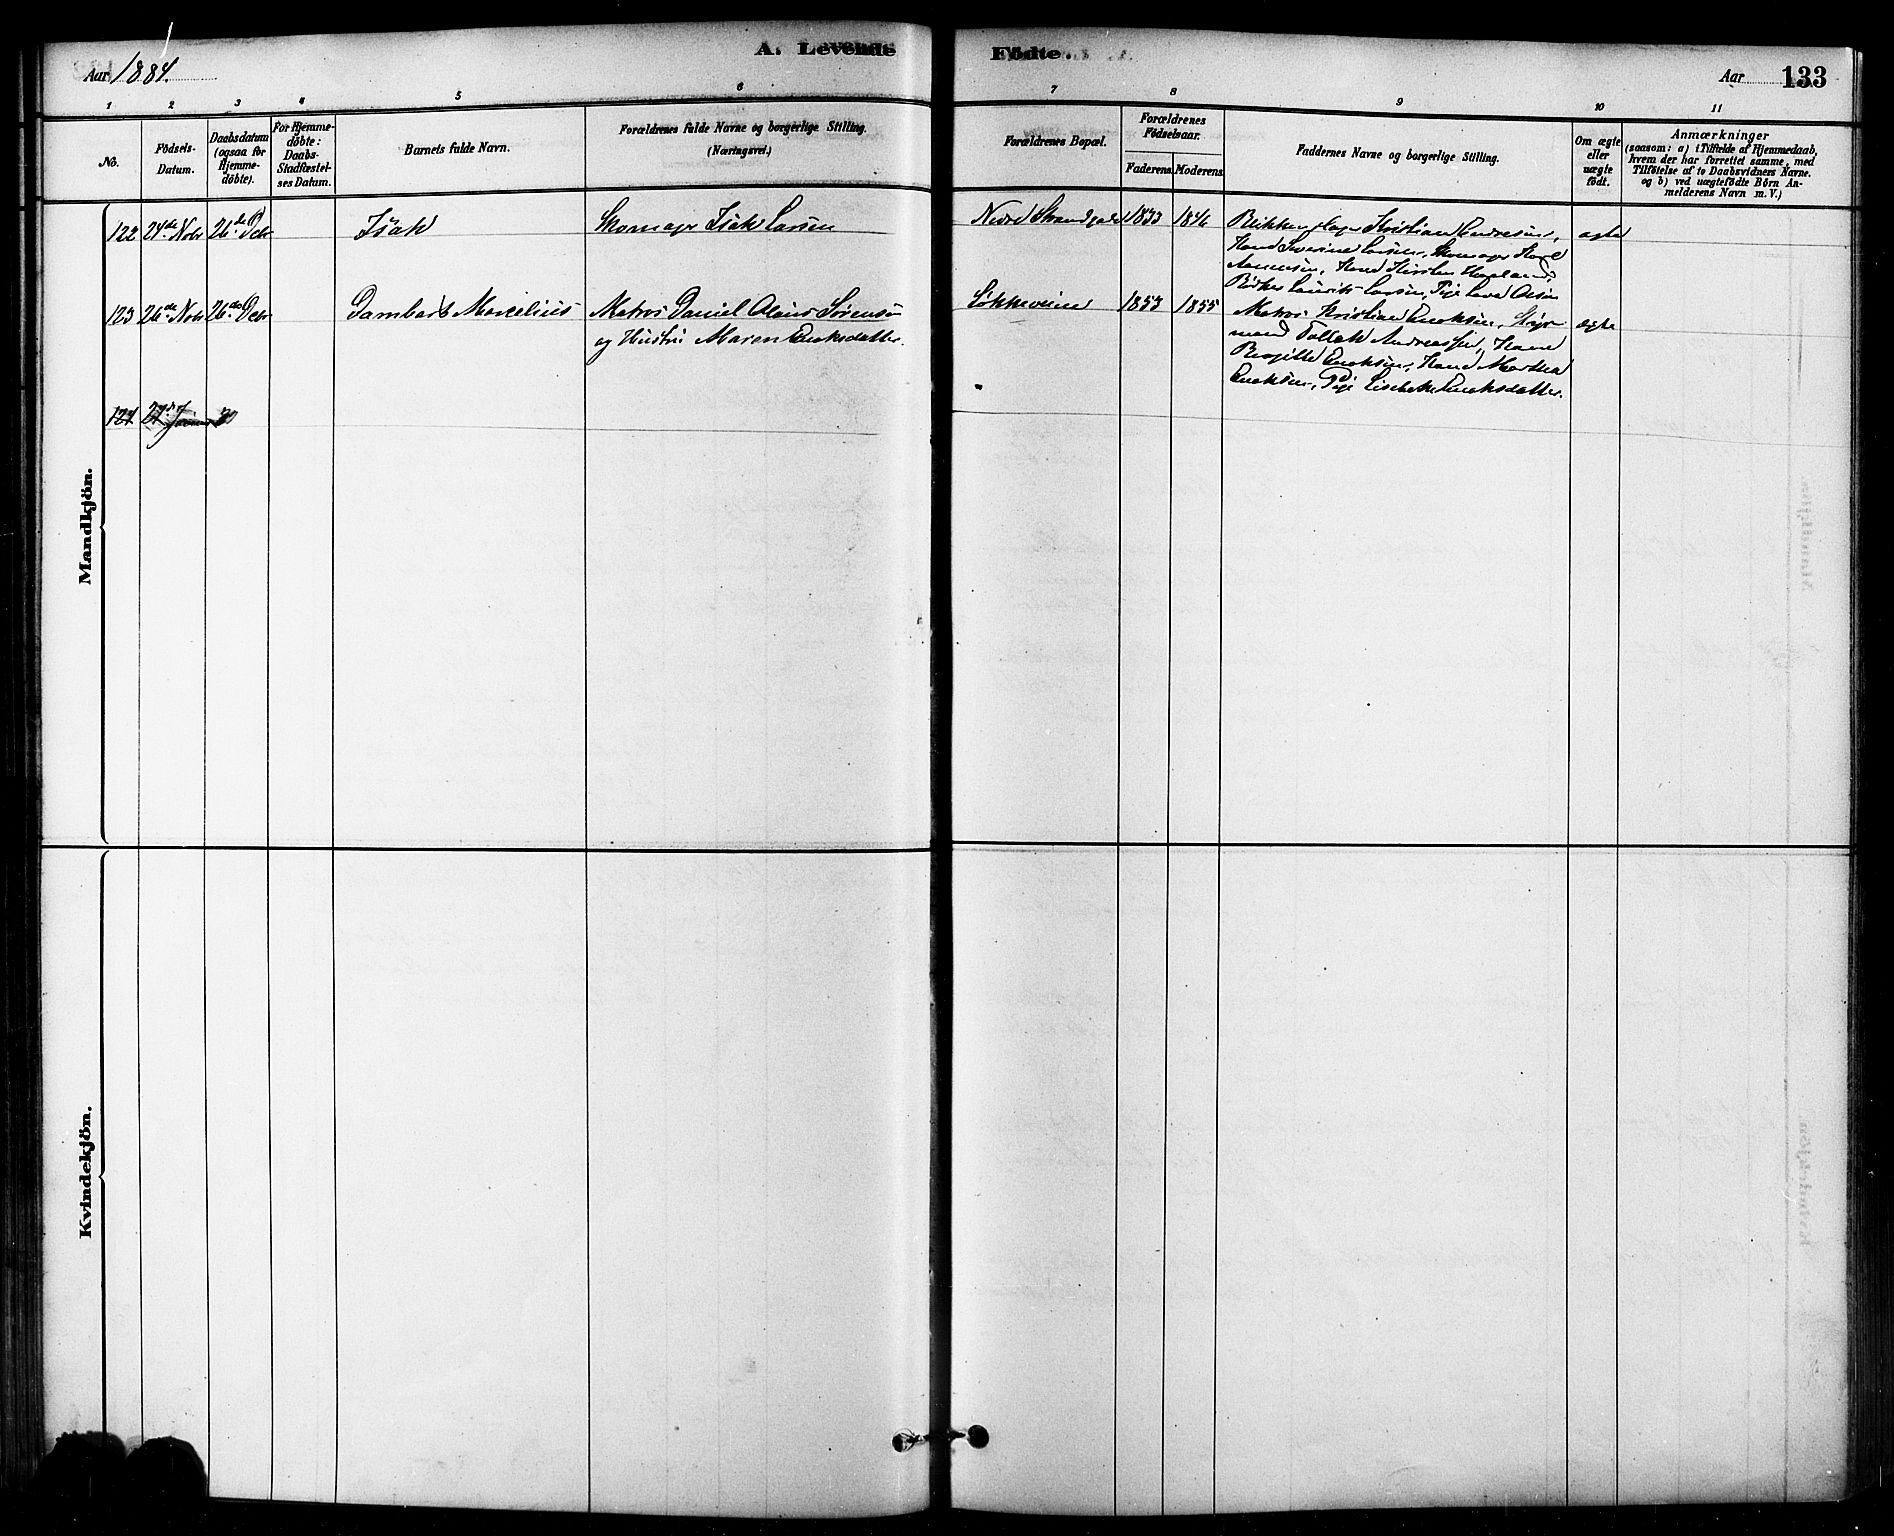 Aar 1884.
A. Levende
Födte.
Aar
133
1
2
3
4
5
6
7
8
9
10
11
No.
Födsels-
Datum.
Daabsdatum
(ogsaa for
Hjemme-
döbte).
For Hjemme-
döbte:
Daabs-
Stadfæstel-
ses Datum.
Barnets fulde Navn.
Forældrenes fulde Navne og borgerlige Stilling.
(Næringsvei.)
Forældrenes Bopæl.
Forældrenes
Födselsaar.
Faderens.
Moderens.
Faddernes Navne og borgerlige Stilling.
Om ægte
eller
uægte
födt.
Anmærkninger
(saasom: a) i Tilfælde af Hjemmedaab,
hvem der har forrettet samme, med
Tilföielse af to Daabsvidners Navne.
og b) ved uægtefödte Börn An-
melderens Navn m. V.)
Mandkjön.
122 24de Novbr 26de Dcbr Isak Skomager Isak Larsen
Nedre Strandgade 1833 1846
Kristian Endresen,
Kone Severine Larsen, Skomager Karl
Kone Kirsten
Lauritz Larsen, Pige Lava Olsen
ægte
123 26de Novbr 26de Dcbr Dambart Marcelius Matros Daniel Olaus Sörensen
og Hustru Maren Enoksdatter.
Løkkeveien 1853 1855
Matros Kristian Enoksen, Styr-
mand Tollak Andreassen, Kone
Birgitte Enoksen, Kone Martha
Enoksen, Pige Lisbeth Enoksdatter.
ægte
124 27de
Kvindekjön.